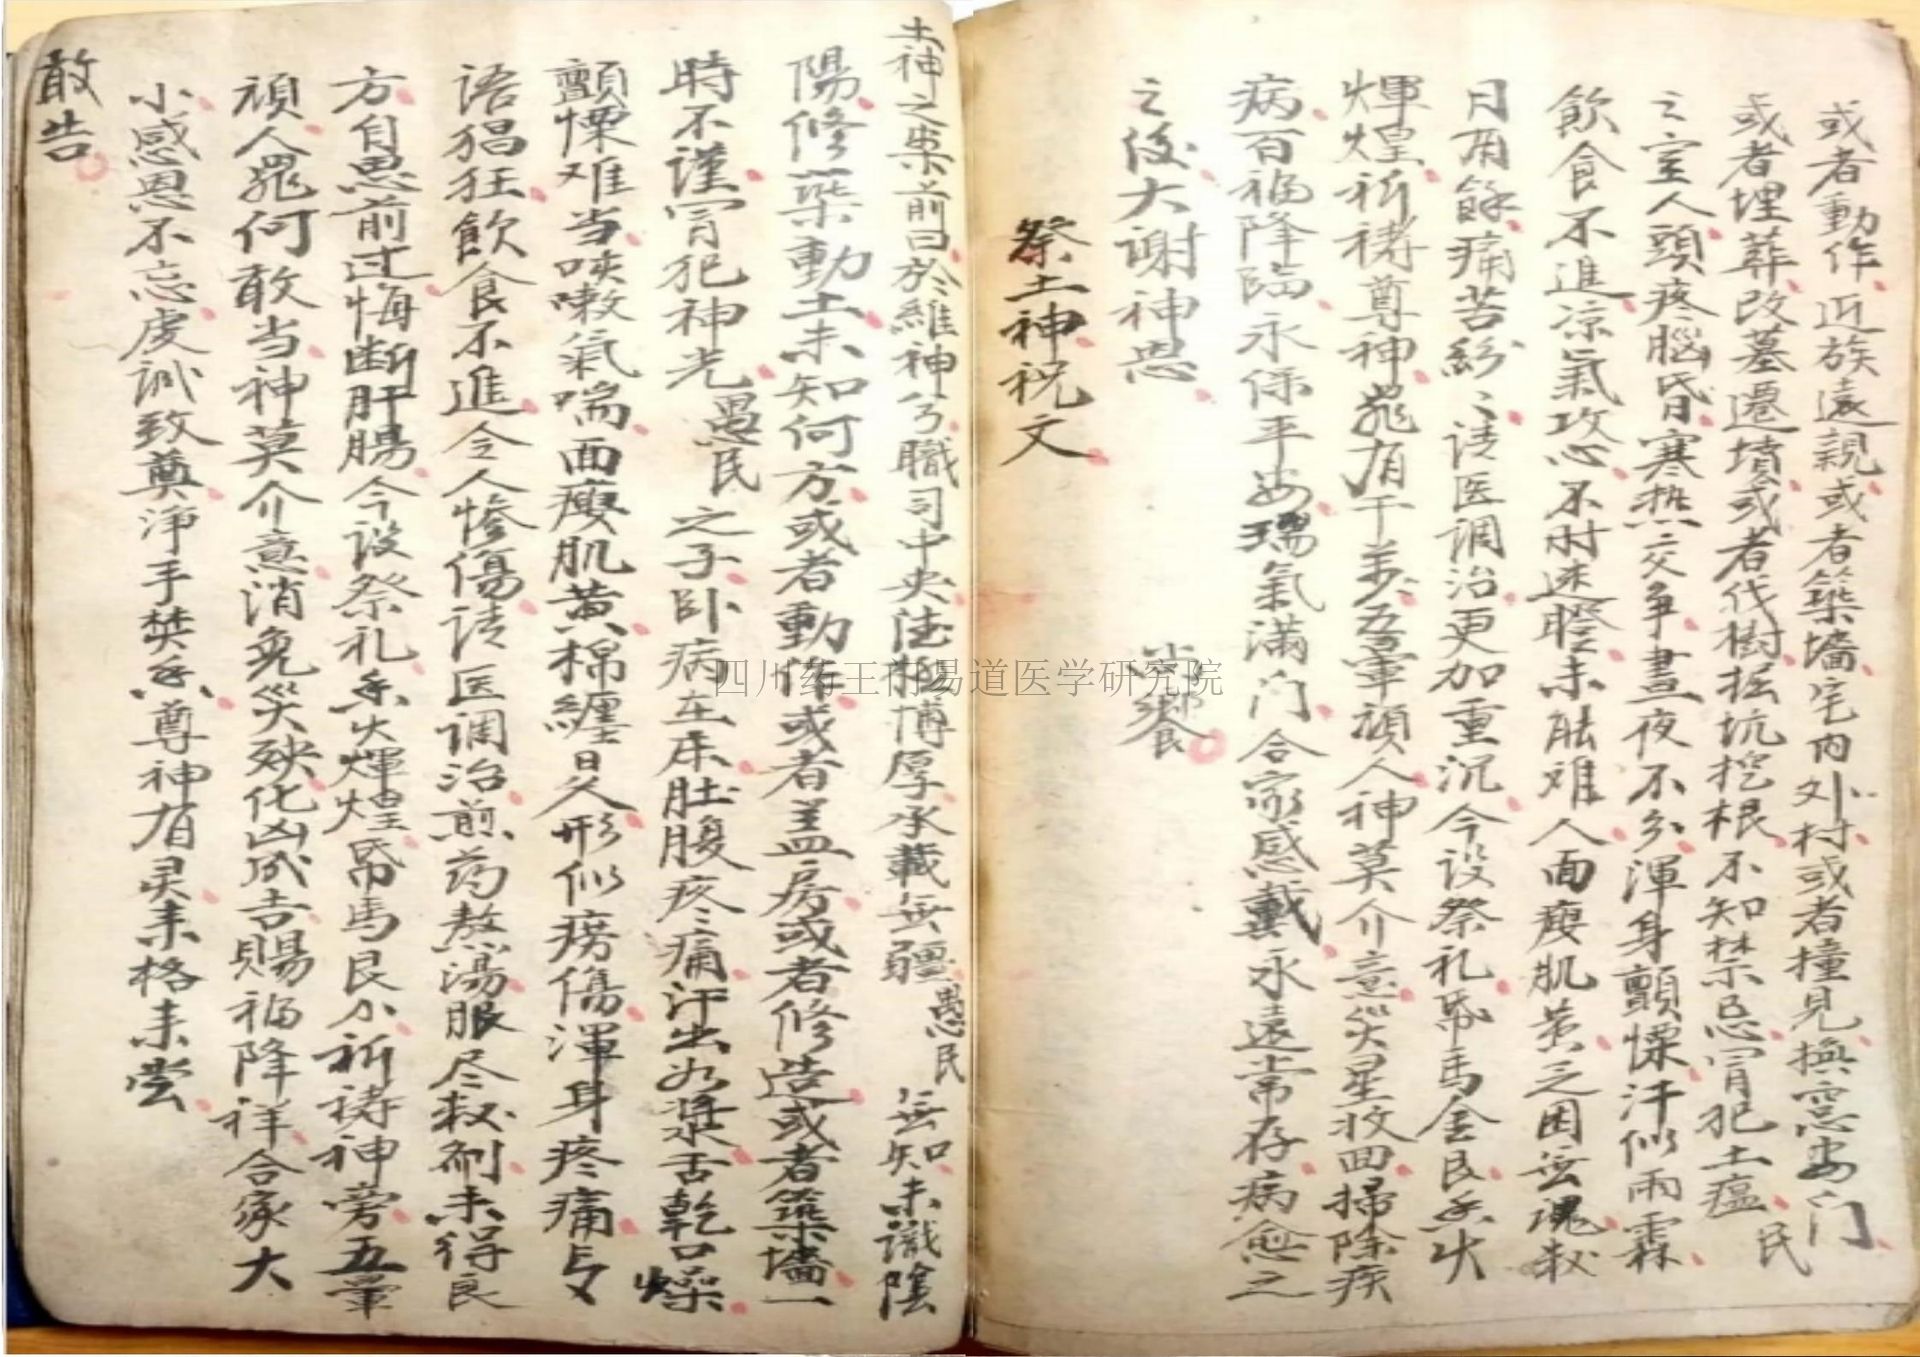 或者動作近族遠親或者築墙宅内外村或者撞見換窓安门
或者埋葬改墓遷墳或者伐樹掘坑挖根不知禁忌冐犯土瘟民
之室人頭疼腦昏寒热交争晝夜不分渾身顫慄汗似雨霖
飲食不進凉氣攻心不时迷瞪未能难人面瘦肌黄乏困無魂救
月有餘痛苦紛々请医调治更加重沉今设祭礼帋馬金艮香火
煇煌祈祷尊神罪有千万吾軰頑人神莫介意災星收回掃除疾
病百福降臨永保平安瑞氣满门合家感戴永遠常存病愈之
之後大谢神恩
尚饗
祭土神祝文
土神之案前曰於維神兮職司中央德極博厚承載無疆愚民無知未識陰
陽修築動土未知何方或者動作或者盖房或者修造或者築墙一
時不谨冐犯神光愚民之子卧病在床肚腹疼痛汗出如漿舌乾口燥
顫慄难当咳嗽氣喘面瘦肌黄棉纏日久形似痨傷渾身疼痛
语猖狂飲食不進令人惨傷请医调治煎药熬湯服尽救剂未得良
方自思前过悔断肝腸今设祭礼香火煇煌帋馬艮分祈祷神旁吾軰
頑人罪何敢当神莫介意消免災殃化凶成吉賜福降祥合家大
小感恩不忘虔诚致奠淨手焚香尊神有灵来格来尝
敢告
四川药王谷易道医学研究院